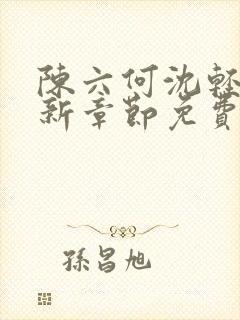 陳六何沈輕
新章節免費
孫昌旭